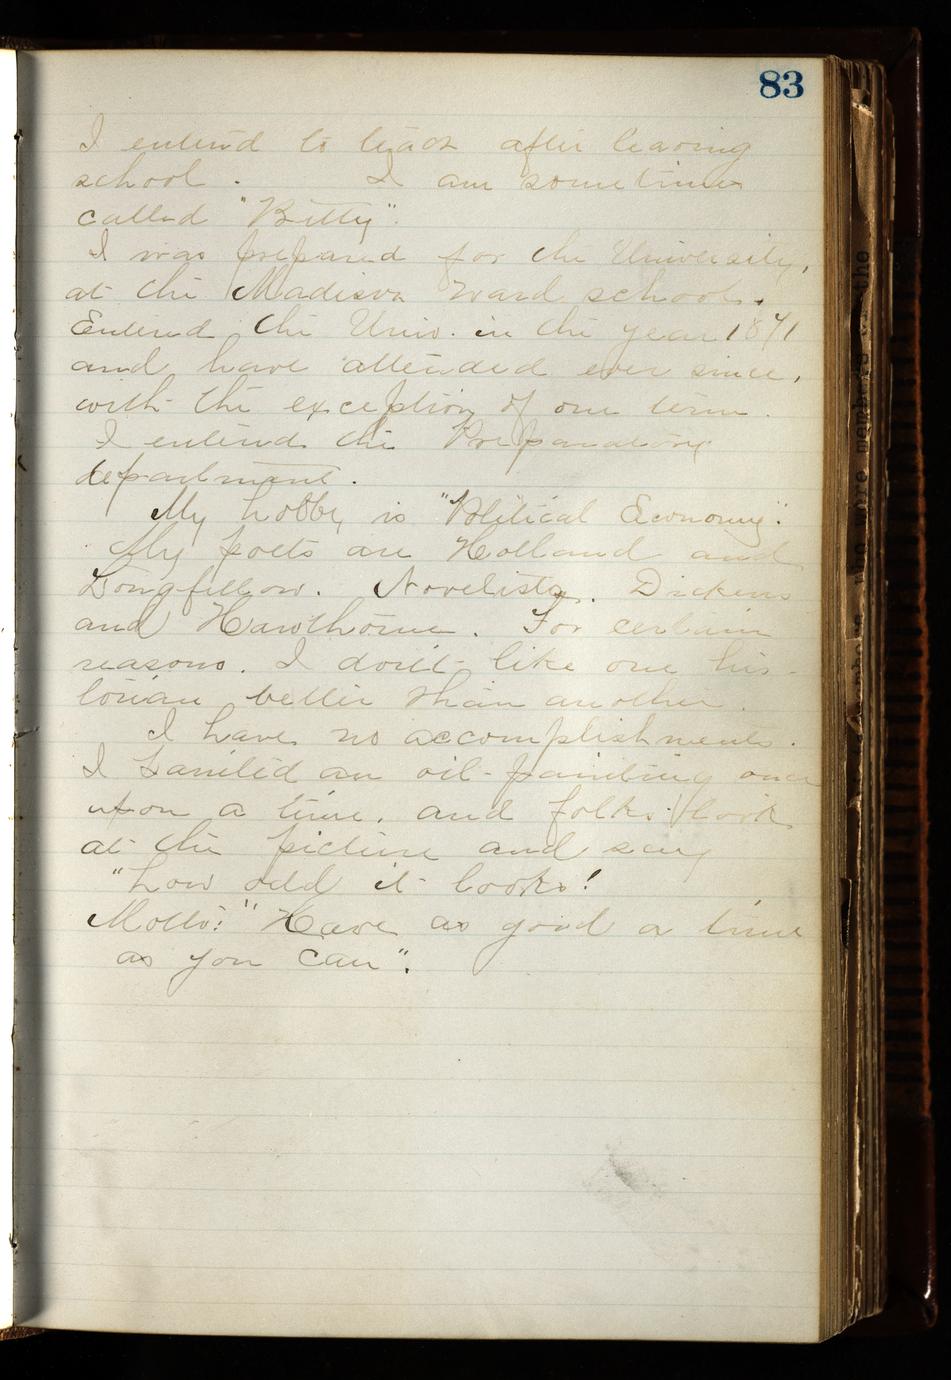 83
I entend to teach after leaving
school. I am sometimes
called "Bitty".
I was prepared for the University,
at the Madison Ward schools.
Entered the Univ. in the year 1871
and have attended ever since,
with the exception of one term.
I entered the Preparatory
department.
My hobby is "Political Economy".
My poets are Holland and
Longfellow. Novelists. Dickens
and Hawthorne. For certain
reasons. I don't like one his-
torian better than another.
I have no accomplishments.
I painted an oil-painting once
upon a time, and folks look
at the picture and say
"how odd it looks!
Motto: "Have as good a time
as you can".
who were members of the